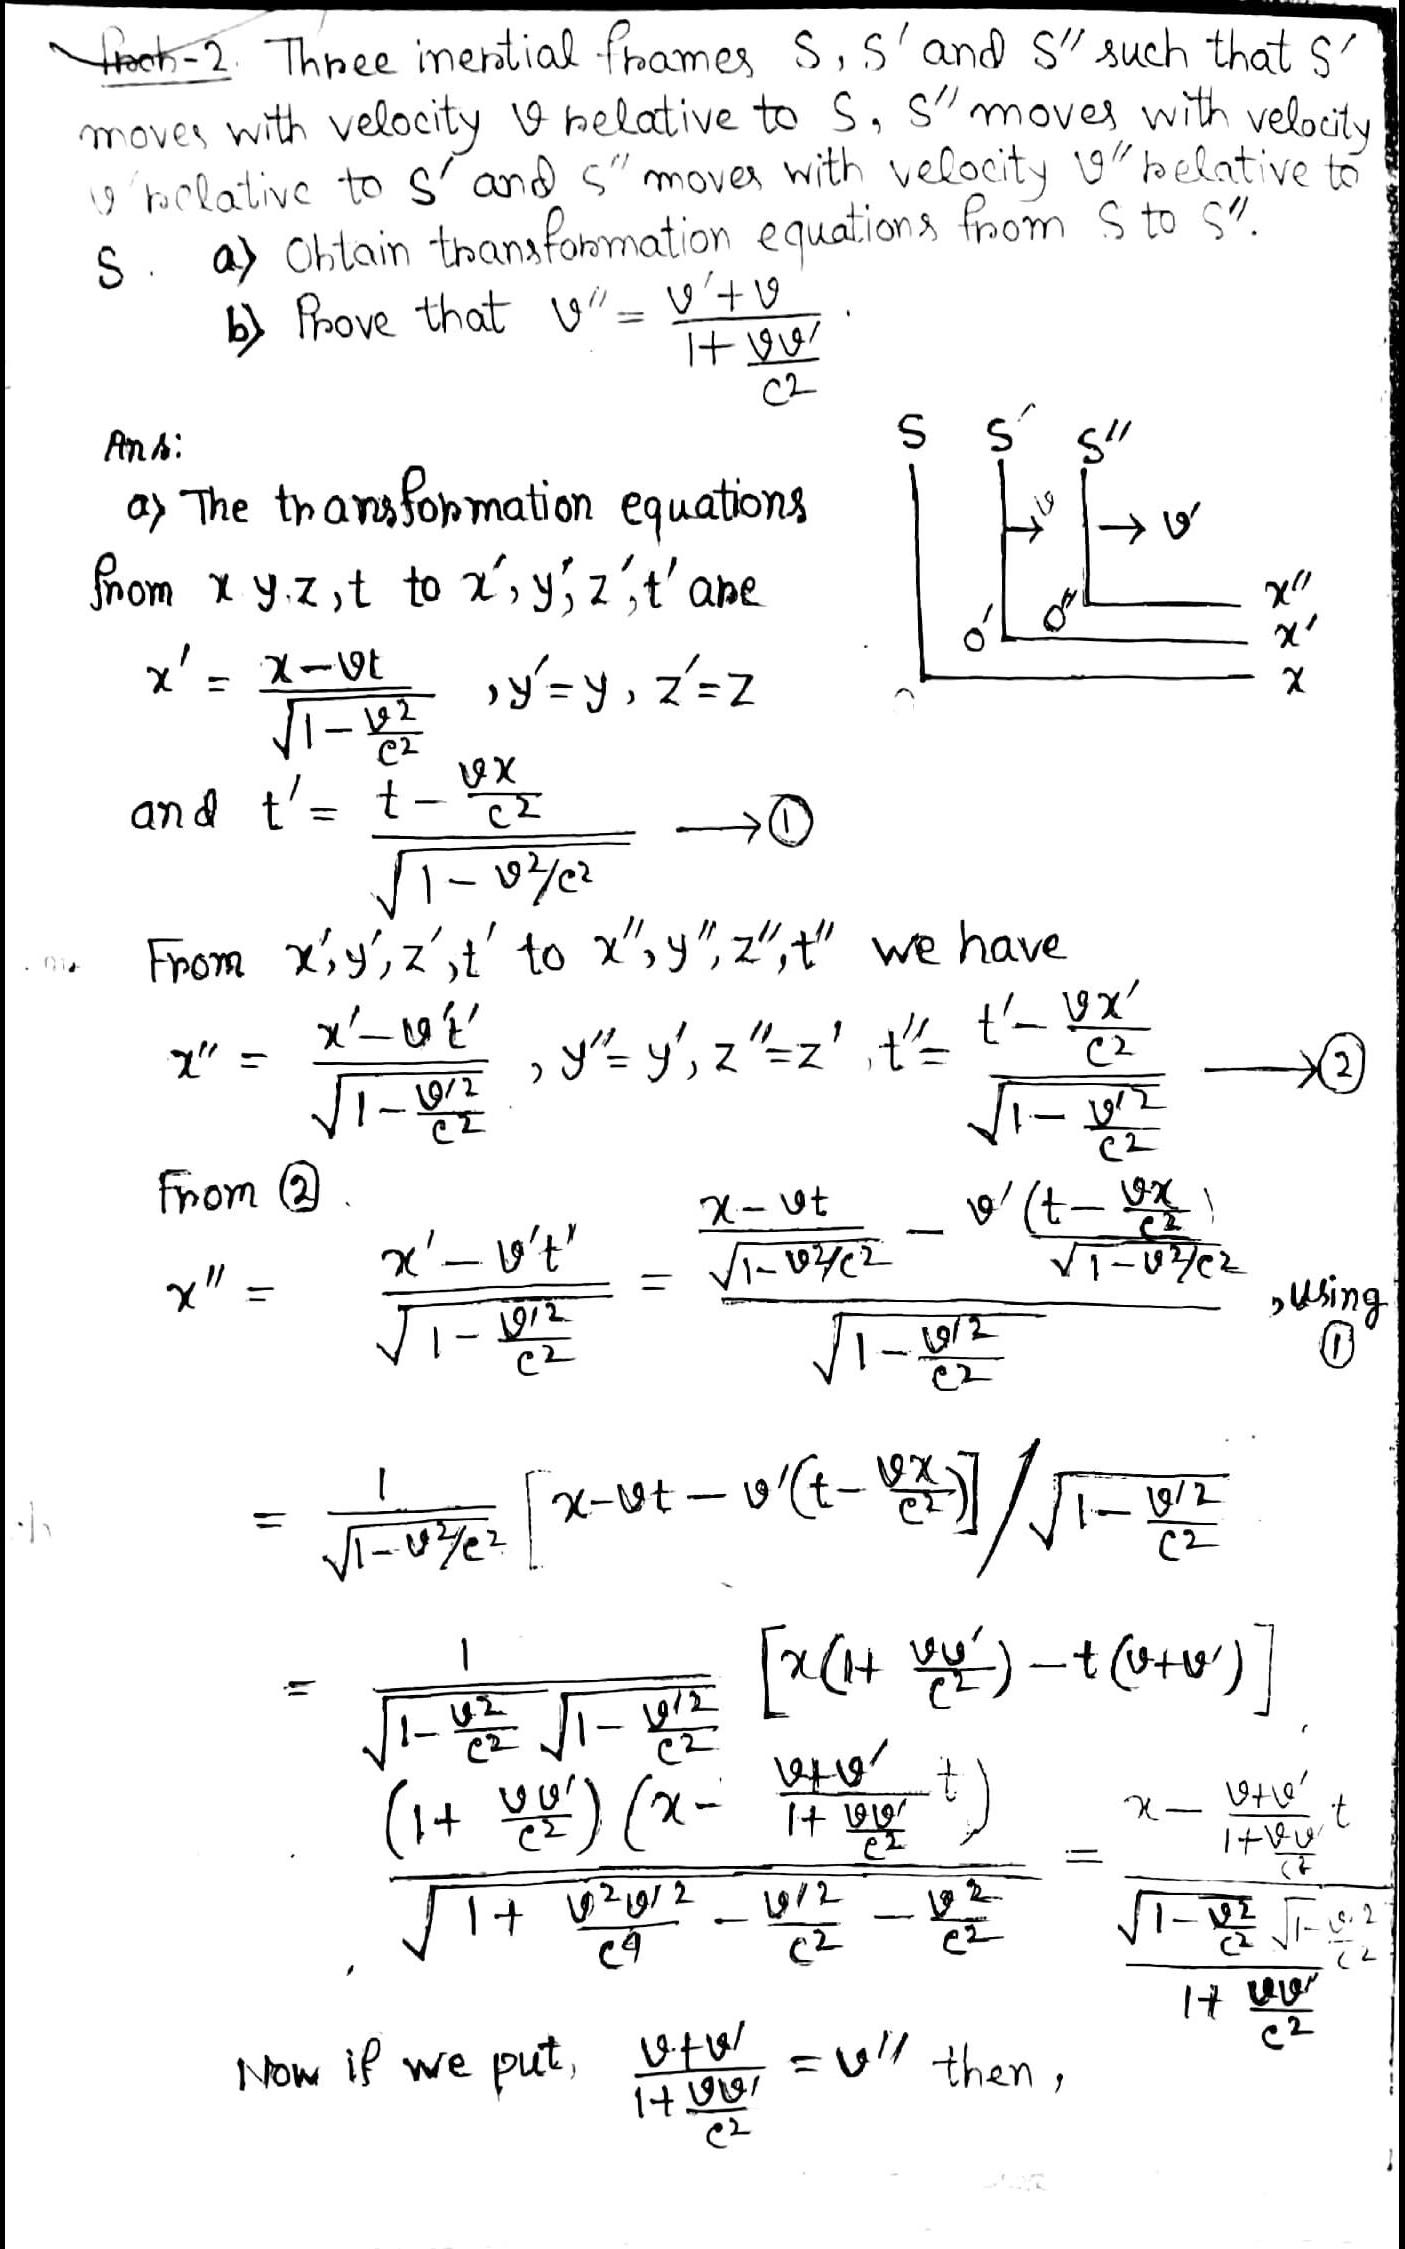 Prob-2. Three inertial frames S, S' and S'' such that S'
moves with velocity v relative to S, S'' moves with velocity
v' relative to S' and S'' moves with velocity v'' relative to
S. a) Obtain transformation equations from S to S''.
b) Prove that v'' = (v'+v)/(1+ vv'/c²).
Ans:
S S' S''
v → v'
O' O''
x''
x'
x
a) The transformation equations
from x y.z,t to x', y', z', t' are
x' = (x-vt)/√(1-v²/c²) , y'=y, z'=z
and t' = (t - vx/c²)/√(1-v²/c²) → ①
From x', y', z', t' to x'', y'', z'', t'' we have
x'' = (x'-v't')/√(1-v'²/c²) , y''=y', z''=z', t''= (t'- vx'/c²)/√(1- v'²/c²) → ②
From ②
x'' = (x'-v't'')/√(1-v'²/c²) = ((x-vt)/√(1-v²/c²) - v'(t- vx/c²)/√(1-v²/c²))/√(1-v'²/c²) , using ①
= 1/√(1-v²/c²) [x-vt-v'(t- vx/c²)] / √(1-v'²/c²)
= 1/(√(1-v²/c²) √(1-v'²/c²)) [x(1+ vv'/c²) - t(v+v')]
(1+ vv'/c²)(x- (v+v')/(1+ vv'/c²) t)/√(1+ v²v'²/c⁴ - v'²/c² - v²/c²) = (x- (v+v')/(1+vv'/c²) t)/(√(1-v²/c²) √(1-v'²/c²)/(1+ vv'/c²))
Now if we put, (v+v')/(1+ vv'/c²) = v'' then,